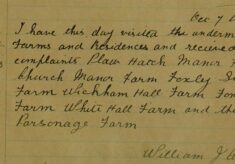 Dec 7
I have this day visited the underm
Farms and Residences and received
complaints Plaw Hatch Manor F
Church Manor Farm Foxley
Farm Wickham Hall Farm
Farm White Hall Farm and the
Parsonage Farm
William